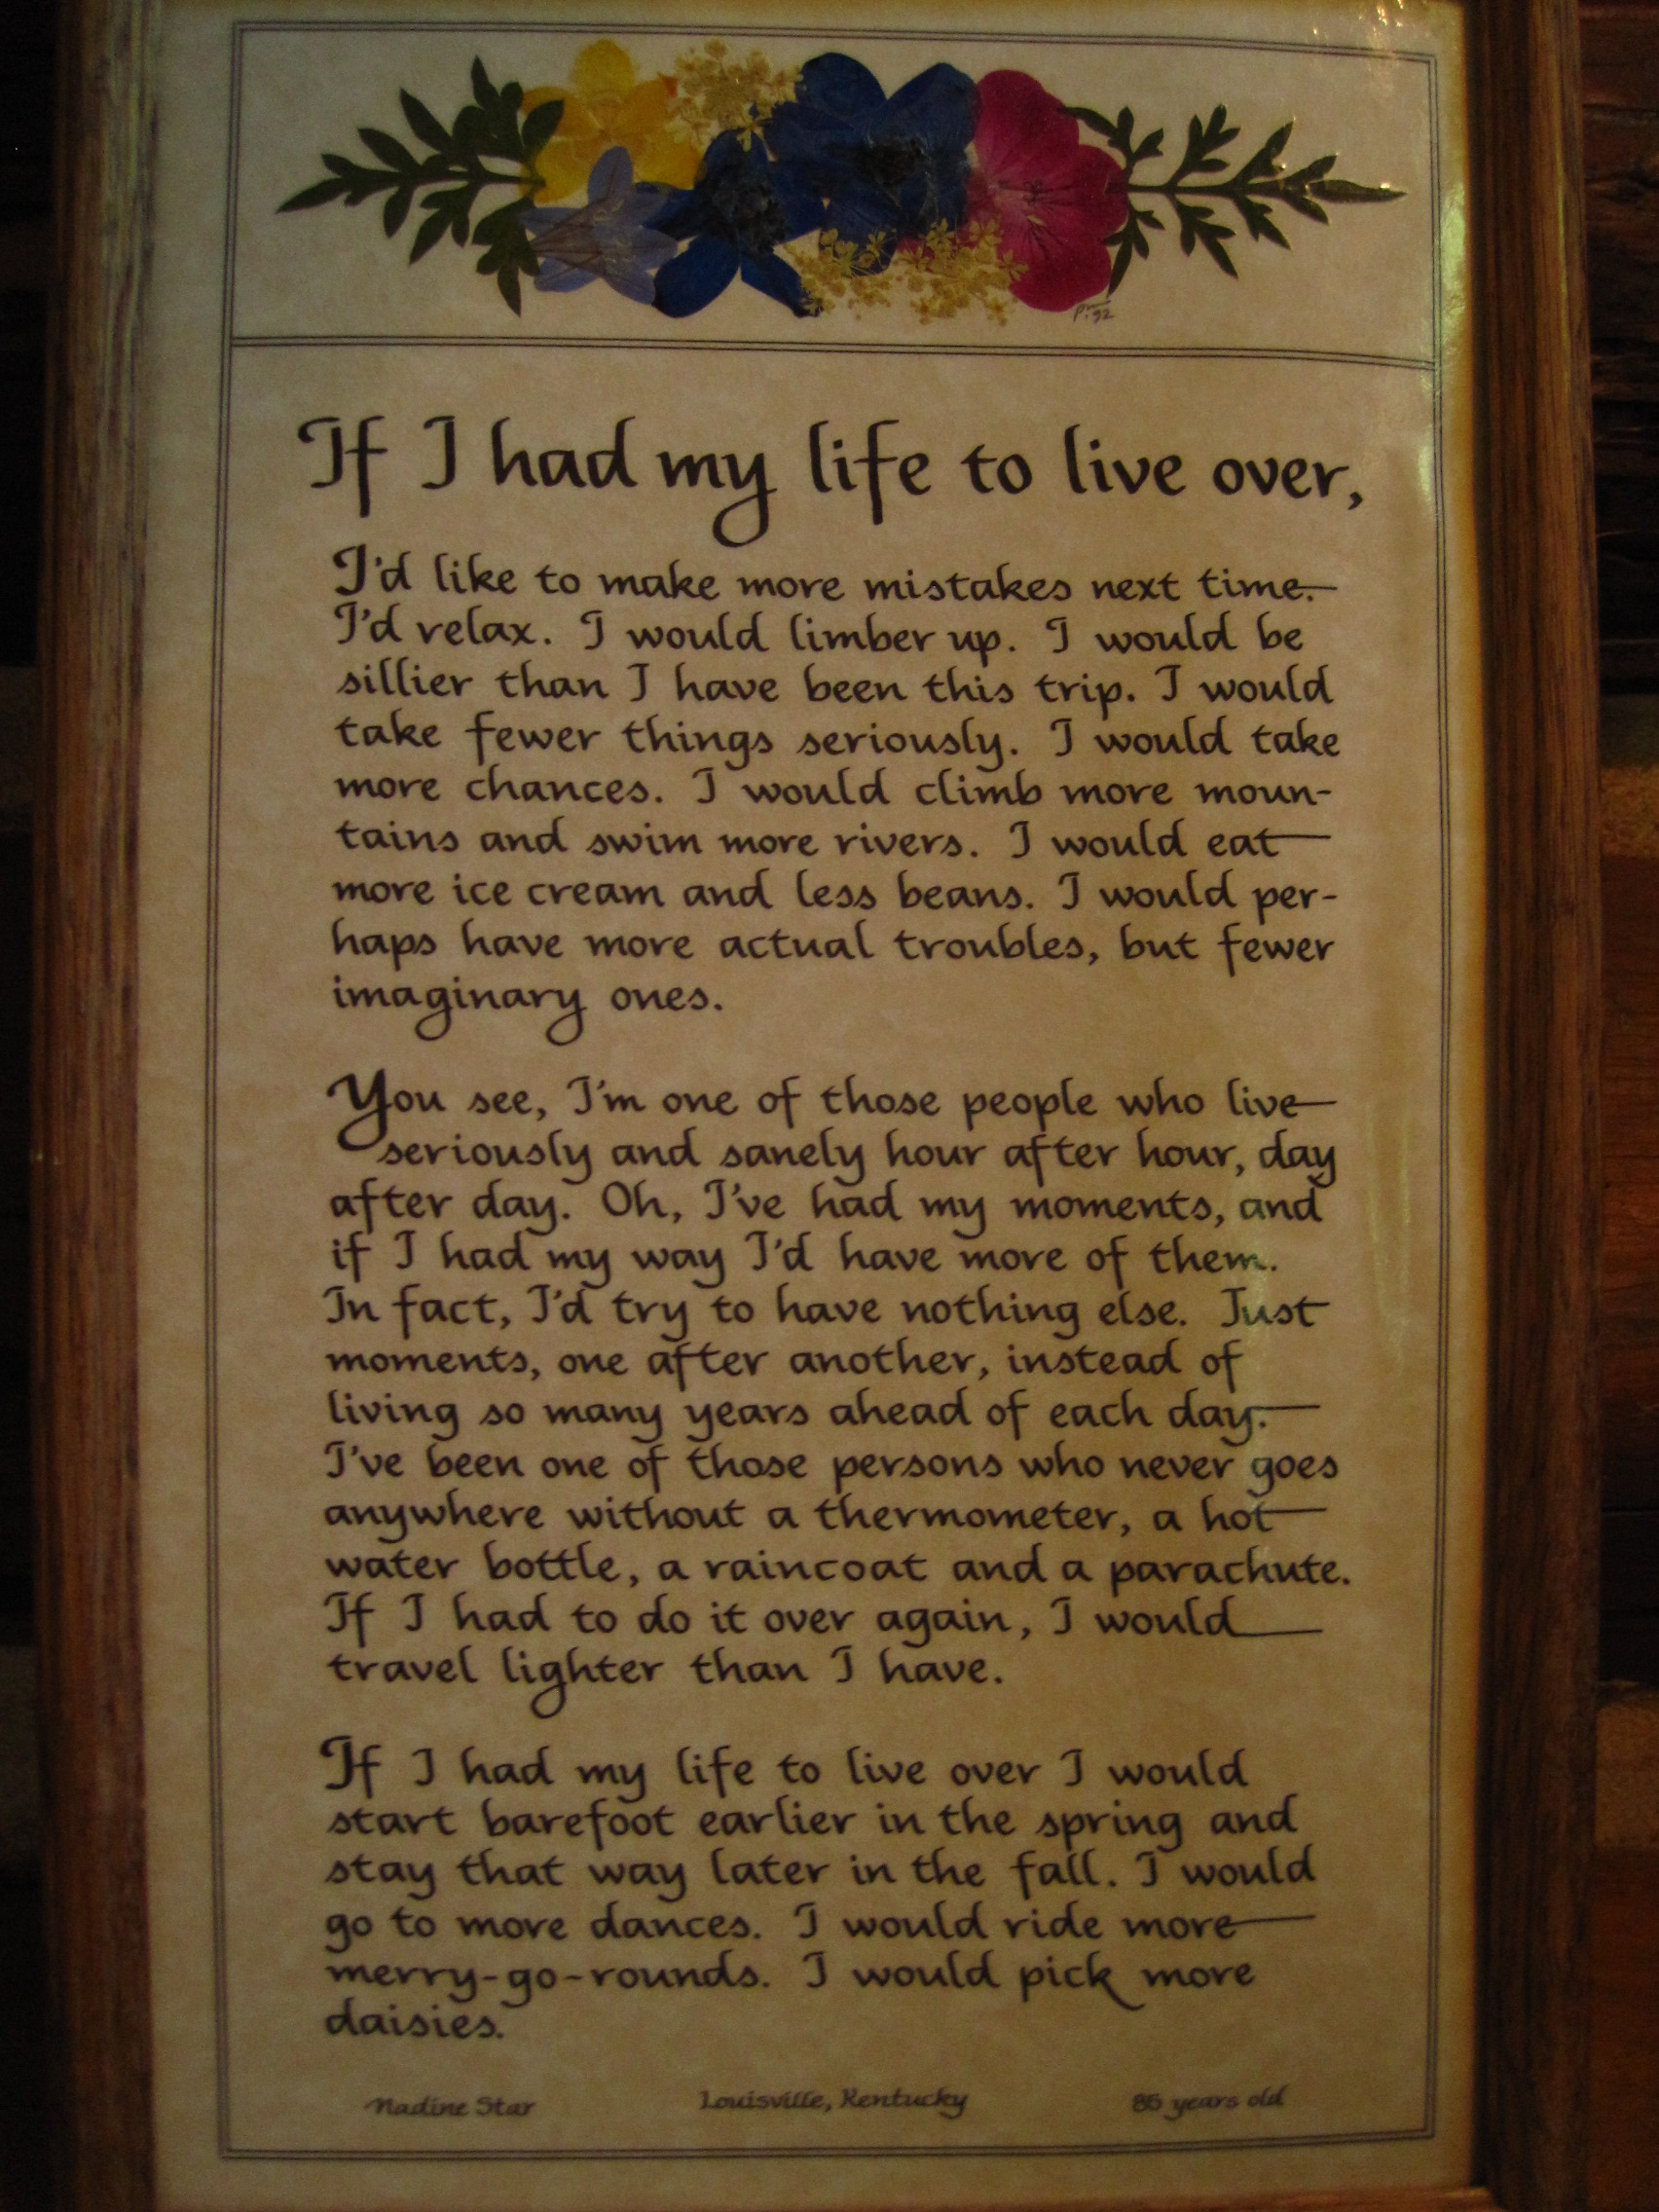 If I had my life to live over,
I'd like to make more mistakes next time.
I'd relax. I would limber up. I would be
sillier than I have been this trip. I would
take fewer things seriously. I would take
more chances. I would climb more moun-
tains and swim more rivers. I would eat
more ice cream and less beans. I would per-
haps have more actual troubles, but fewer
imaginary ones.
You see, I'm one of those people who live
seriously and sanely hour after hour, day
after day. Oh, I've had my moments, and
if I had my way I'd have more of them.
In fact, I'd try to have nothing else. Just
moments, one after another, instead of
living so many years ahead of each day.
I've been one of those persons who never goes
anywhere without a thermometer, a hot
water bottle, a raincoat and a parachute.
If I had to do it over again, I would
travel lighter than I have.
If I had my life to live over I would
start barefoot earlier in the spring and
stay that way later in the fall. I would
go to more dances. I would ride more
merry-go-rounds. I would pick more
daisies.
Nadine Star Louisville, Kentucky 85 years old